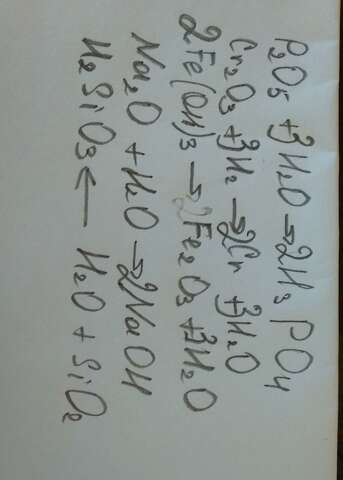 P₂O₅ + 3H₂O → 2H₃PO₄
Cr₂O₃ + 3H₂ → 2Cr + 3H₂O
2Fe(OH)₃ → 2Fe₂O₃ + 3H₂O
Na₂O + H₂O → 2NaOH
H₂SiO₃ ← H₂O + SiO₂